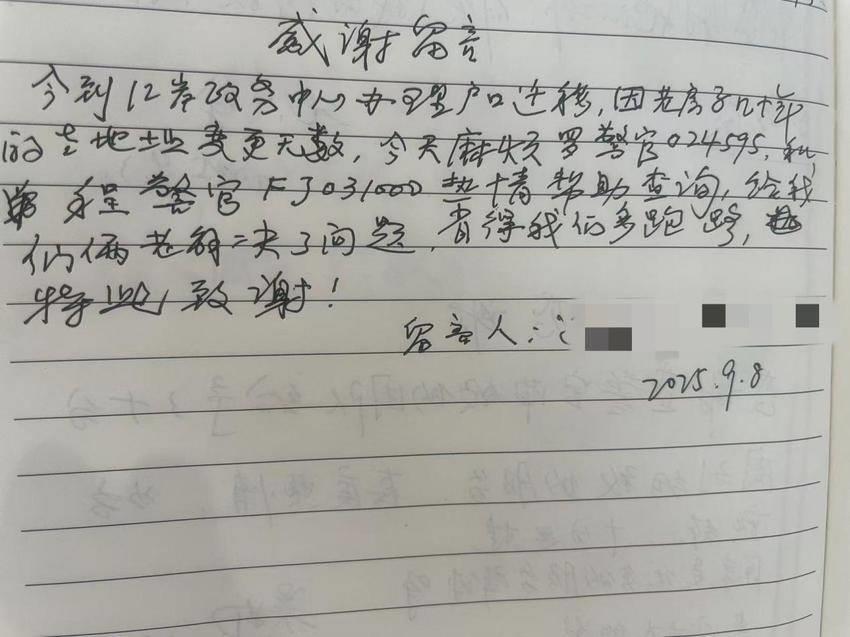 感谢留言
今到12岸政务中心办理户口迁移,因老房子几十年
的老地址变更无数,今天麻烦罗警官024595,和
程警官FJ031000热情帮助查询,给我
们俩老解决了问题,省得我们多跑路,
特此致谢!
留言人:
2025.9.8